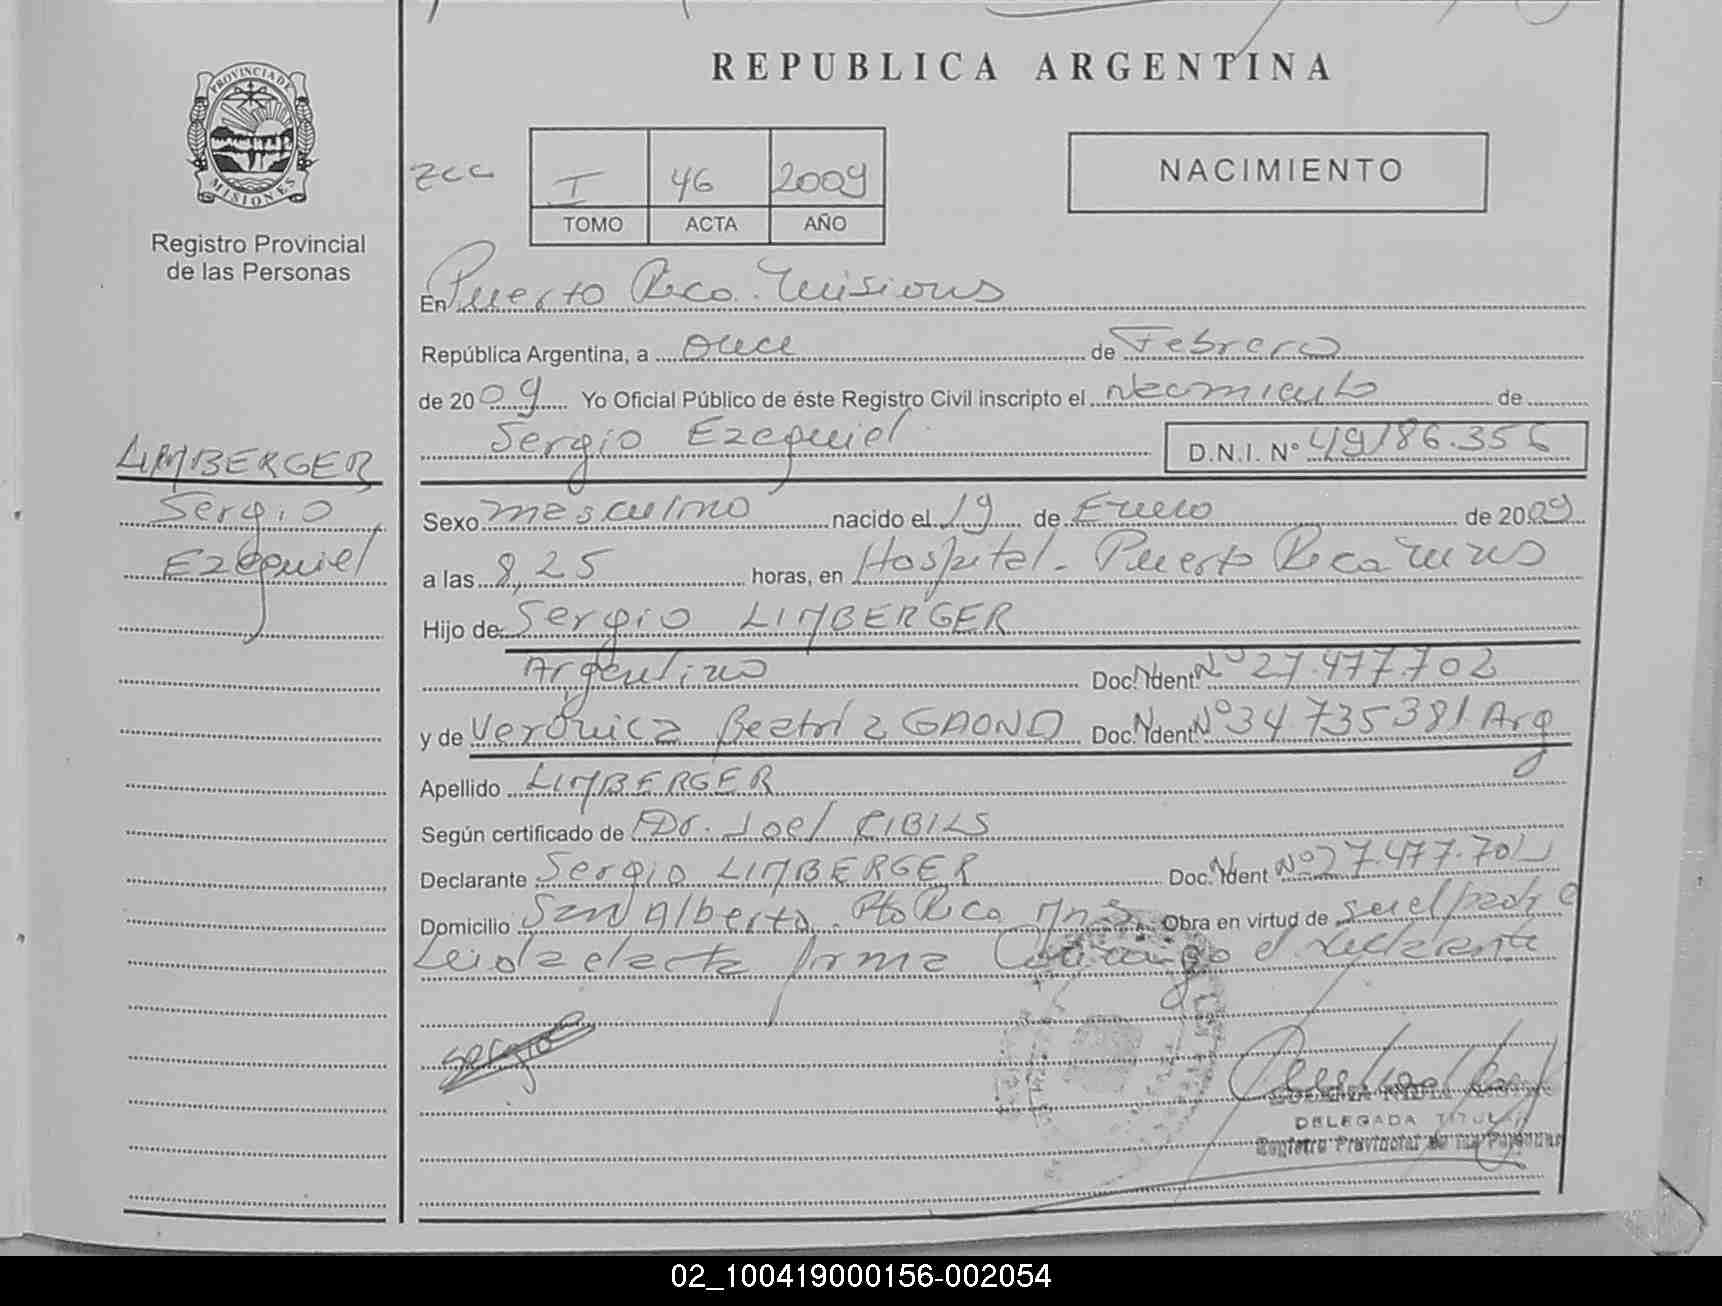 REPUBLICA ARGENTINA
PROVINCIA DE MISIONES
Registro Provincial
de las Personas
I 46 2009
TOMO ACTA AÑO
NACIMIENTO
En Puerto Rico. Misiones
República Argentina, a once de Febrero
de 2009 Yo Oficial Público de éste Registro Civil inscripto el nacimiento de
Sergio Ezequiel D.N.I. Nº
LIMBERGER
Sergio
Ezequiel
Sexo masculino nacido el 19 de Enero de 2009
a las 8,25 horas, en Hospital. Puerto Rico
Hijo de: Sergio LIMBERGER
Argentino Doc. Ident. Nº 27.477.702
y de Verónica Beatriz GAONA Doc. Ident. Nº 34.735381 Arg
Apellido LIMBERGER
Según certificado de Dr. Joel CIBILS
Declarante Sergio LIMBERGER Doc. Ident Nº 27.477.702
Domicilio San Alberto. Pto Rico Mns Obra en virtud de ser el padre
Leida el acta firma conmigo el declarante
Sergio
DELEGADA TITULAR
Registro Provincial de las Personas
02_100419000156-002054